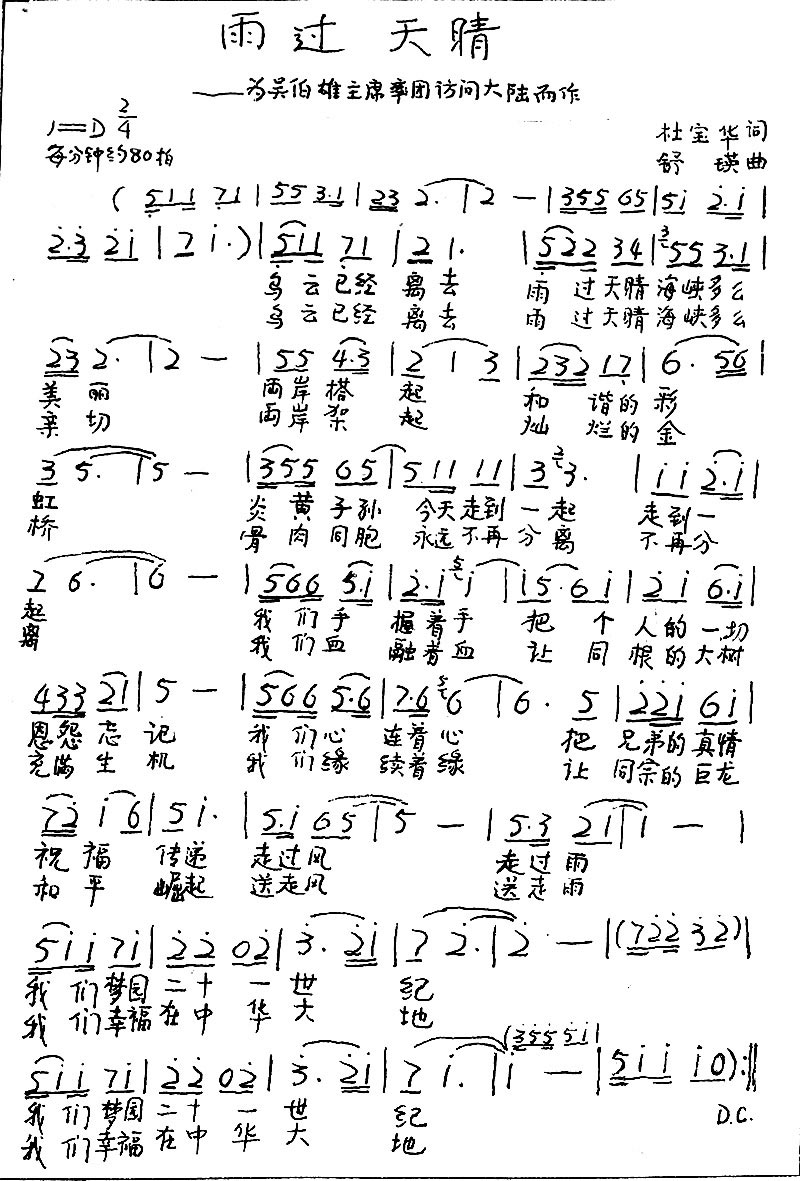 雨过 天晴
——为吴伯雄主席率团访问大陆而作
1=D 2/4
杜宝华 词
每分钟约80拍
舒 瑛 曲
( 511 71 | 55 3·1 | 23 2· | 2 — | 355 65 | 5i 2·i |
2·3 2i | 7 i· ) | 511 71 | 2 1· | 522 34 | 3 55 3·1 |
乌云已经 离去 雨过天晴海峡多么
乌云已经 离去 雨过天晴海峡多么
23 2· | 2 — | 55 4·3 | 2 1 3 | 232 17 | 6· 56 |
美丽 两岸搭 起 和谐的彩
亲切 两岸架 起 灿烂的金
3 5· | 5 — | 355 65 | 5·11 11 | 3 2 3· | i i 2·i |
虹 炎黄子孙 今天走到一起 走到一
桥 骨肉同胞 永远不再分离 不再分
7 6· | 6 — | 566 5·i | 2·i 5 i | i5·6 i | 2 i 6·i |
起 我们手 握着手 把个人的一切
离 我们血 融着血 让同根的大树
433 21 | 5 — | 566 5·6 | 7·6 5 6 | 6· 5 | 22i 6i |
恩怨忘记 我们心 连着心 把兄弟的真情
充满生机 我们缘 续着缘 让同宗的巨龙
72 i6 | 5 i· | 5·i 65 | 5 — | 5·3 2i | i — |
祝福 传递 走过风 走过雨
和平 崛起 送走风 送走雨
5ii 7i | 22 02 | 3· 2i | 7 2· | 2 — | (722 32) |
我们梦园二十一世 纪
我们幸福在中华大 地
(355 5i |
5ii 7i | 22 02 | 3· 2i | 7 i· | i — | 5ii i0) :‖
我们梦园二十一世 纪 D.C.
我们幸福在中华大 地